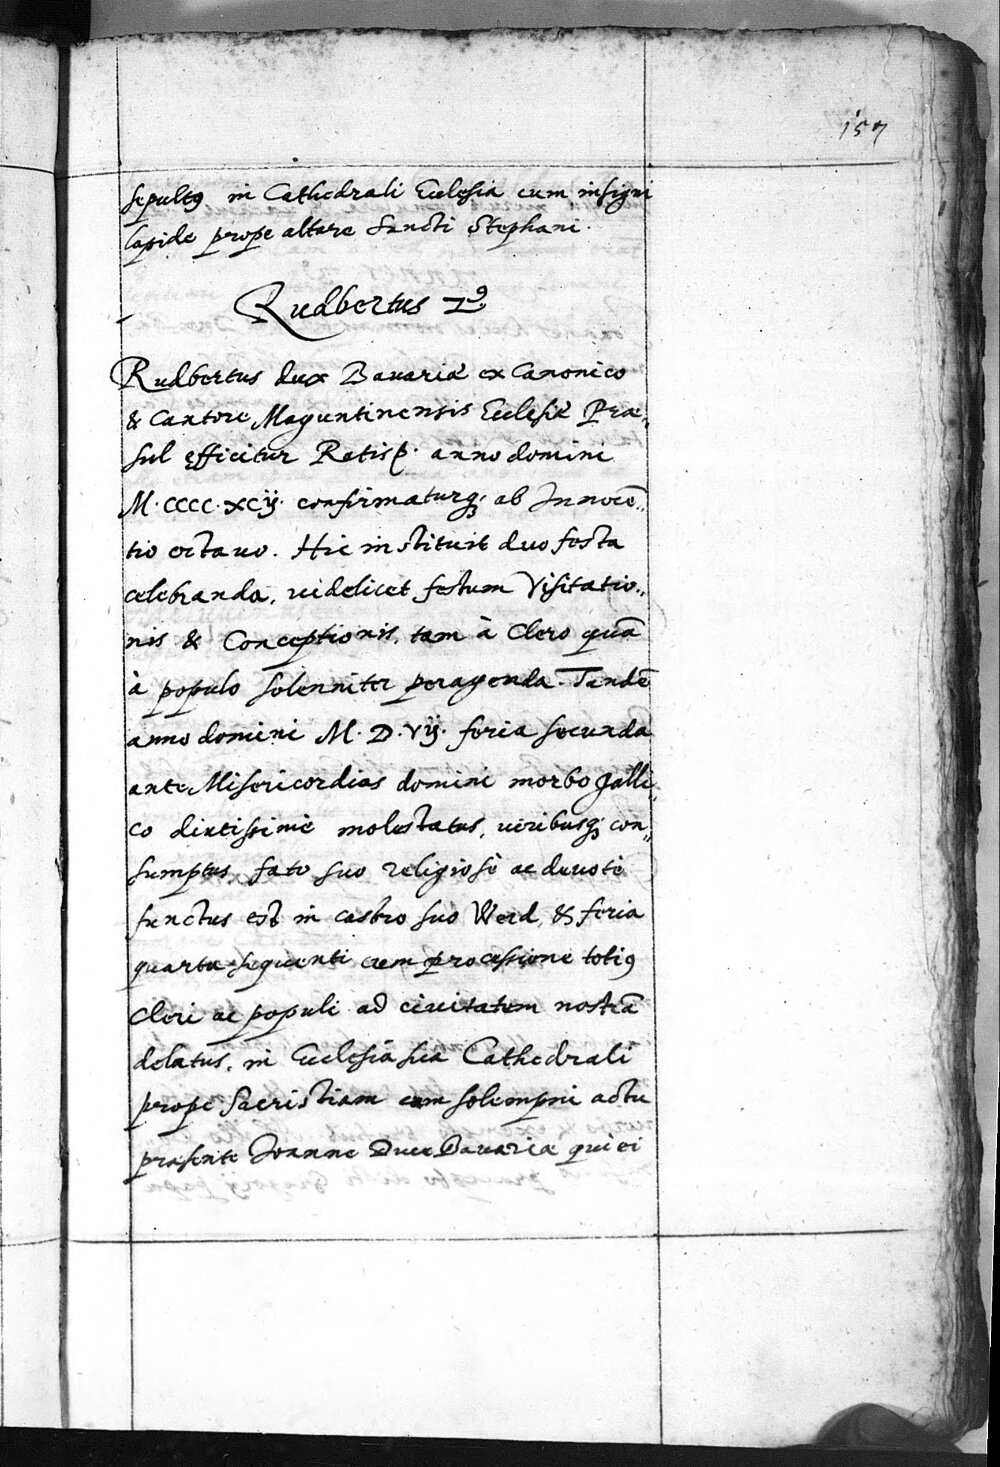 157
sepultꝰ in Cathedrali Ecclesia cum insigni
lapide prope altare Sancti Stephani.
Rudbertus
Rudbertus dux Bauariæ ex Canonico
& Cantore Maguntinensis Ecclesiæ Præ„
sul efficitur Ratisp. anno domini
M. CCCC. XCij. confirmaturq; ab Innocē„
tio octauo. Hic instituit duo festa
celebranda, videlicet festum Visitatio„
nis & Conceptionis, tam à Clero quā
à populo solenniter peragenda. Tandē
anno domini M. D. Vij. feria secunda
ante Misericordias domini morbo galli„
co diutissimè molestatus, viribusq; con„
sumptus fato suo religiosè ac deuotè
functus est in castro suo Werd, & feria
quarta sequenti cum processione totiꝰ
Cleri ac populi ad ciuitatem nostrā
delatus, in Ecclesia sua Cathedrali
prope Sacristiam cum solempni actu
præsente Ioanne Duce Bauariæ qui ei